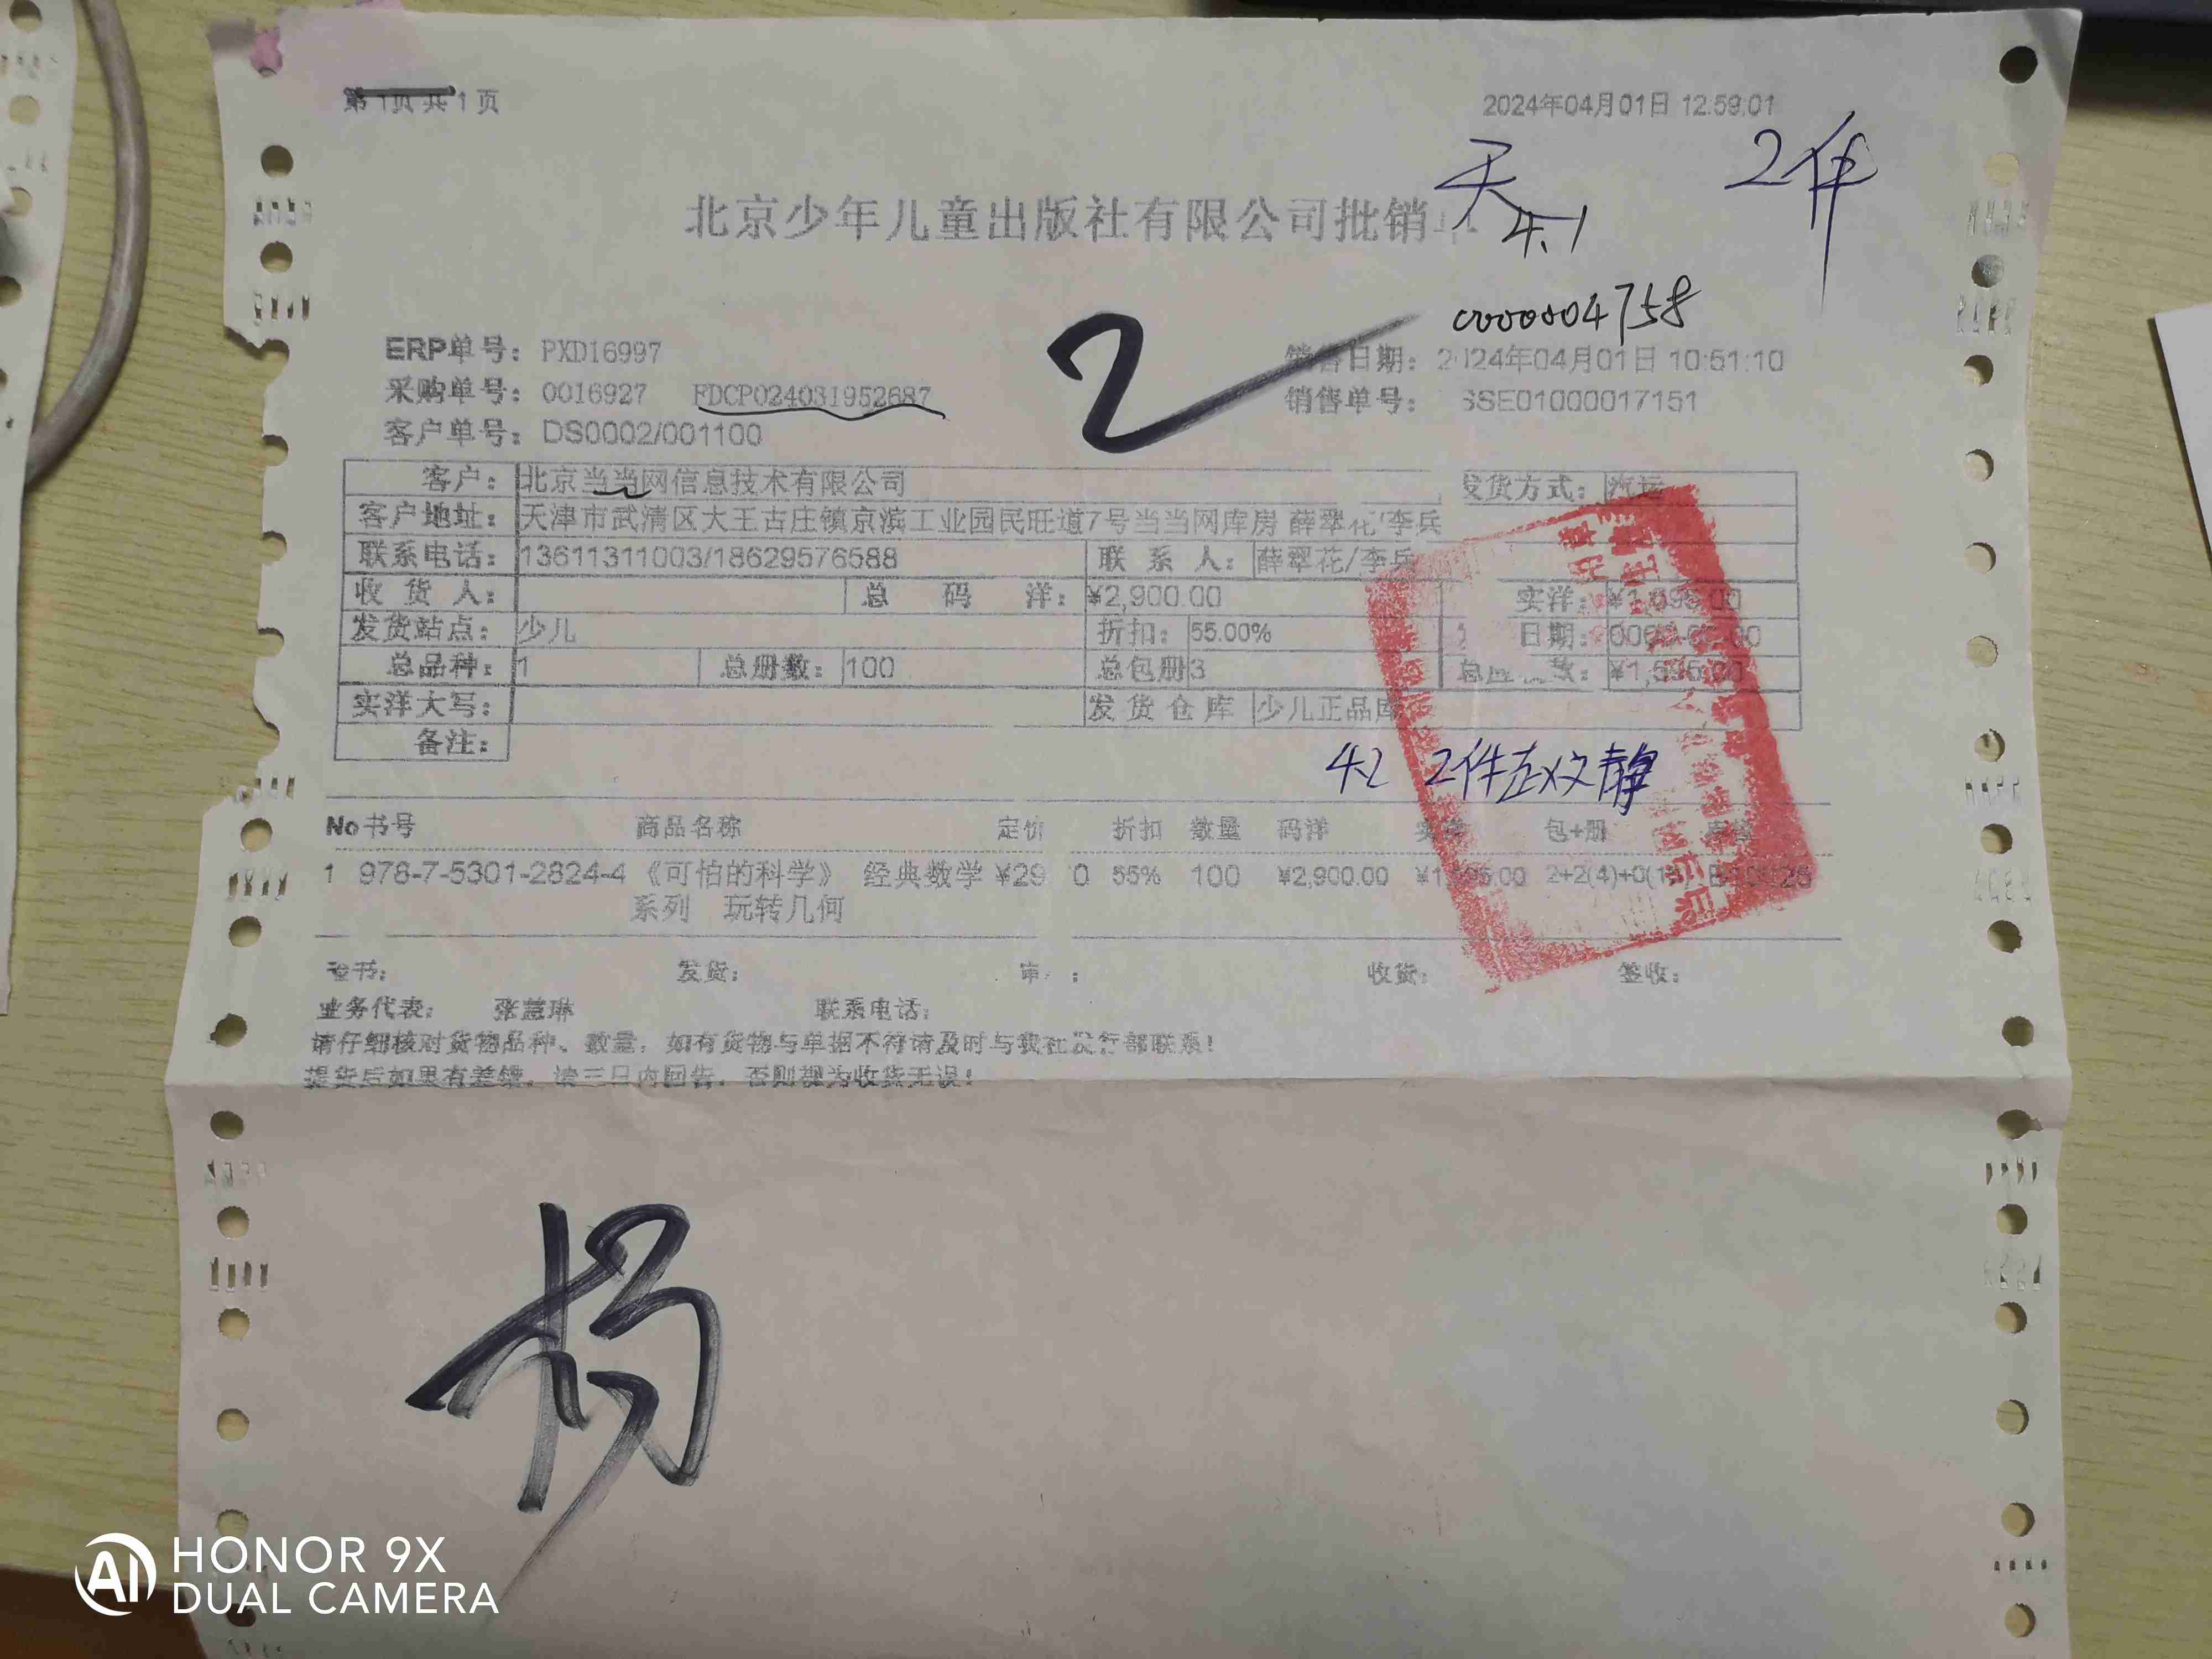 第1页 共1页
2024年04月01日 12:59:01
天 2件
4.1
北京少年儿童出版社有限公司批销
2
0000004758
ERP单号: PXD16997
销售日期: 2024年04月01日 10:51:10
采购单号: 0016927 FDCP024031952687
销售单号: SSE01000017151
客户单号: DS0002/001100
客户: 北京当当网信息技术有限公司 发货方式: 汽运
客户地址: 天津市武清区大王古庄镇京滨工业园民旺道7号当当网库房 薛翠花/李兵
联系电话: 13611311003/18629576588 联系人: 薛翠花/李兵
收货人: 总码洋: ¥2,900.00 实洋: ¥1,595.00
发货站点: 少儿 折扣: 55.00% 日期:
总品种: 1 总册数: 100 总包册 3 ¥1,595.00
实洋大写: 发货仓库 少儿正品库
备注:
4.2 2件赵文静
No 书号 商品名称 定价 折扣 数量 码洋 实洋 包+册
1 978-7-5301-2824-4 《可怕的科学》 经典数学 ¥29 0 55% 100 ¥2,900.00 ¥1,595.00
系列 玩转几何
发货: 收货: 签收:
业务代表: 张慧琳 联系电话:
请仔细核对货物品种、数量，如有货物与单据不符请及时与我社发行部联系!
提货后如果有差错，请三日内回告，否则视为收货无误!
杨
HONOR 9X
AI DUAL CAMERA